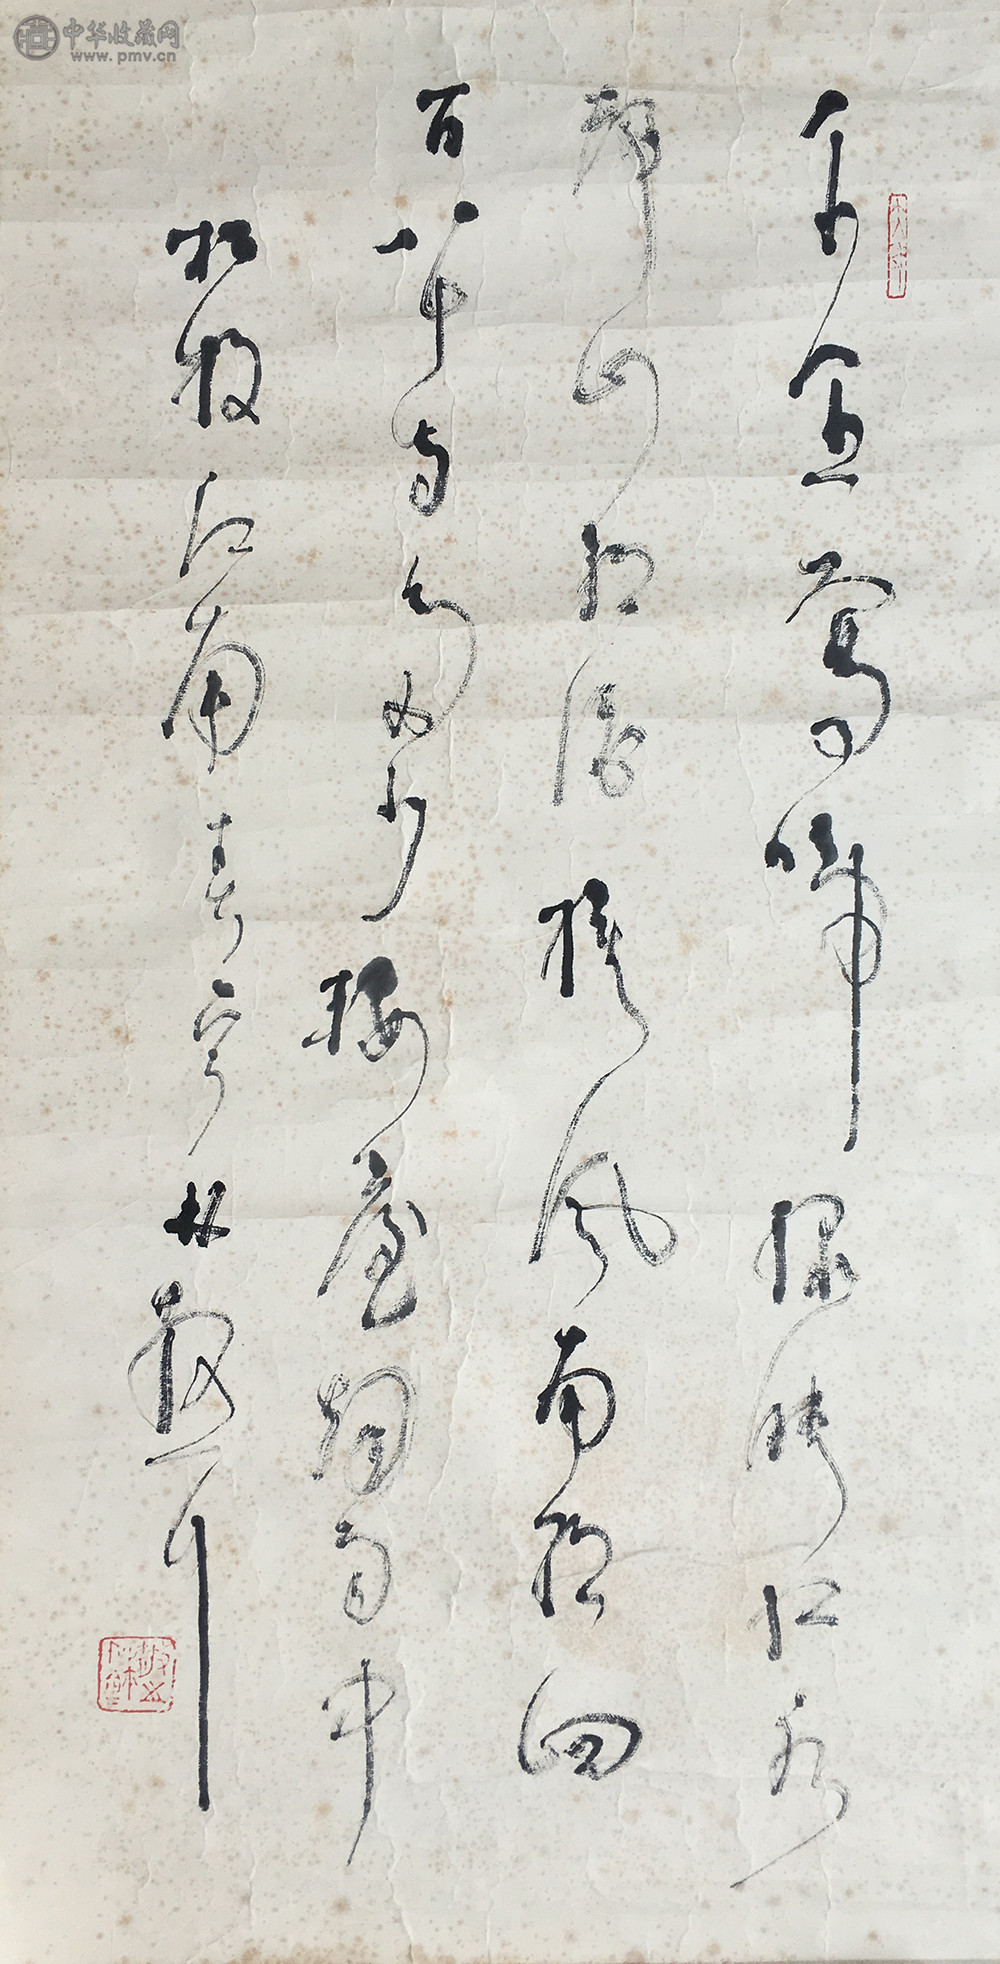 中华收藏网
www.pmv.cn
千里鶯啼綠映紅水
郭山村酒旗風南朝四
百八十寺多少樓臺煙雨中
杜牧江南春 林散耳